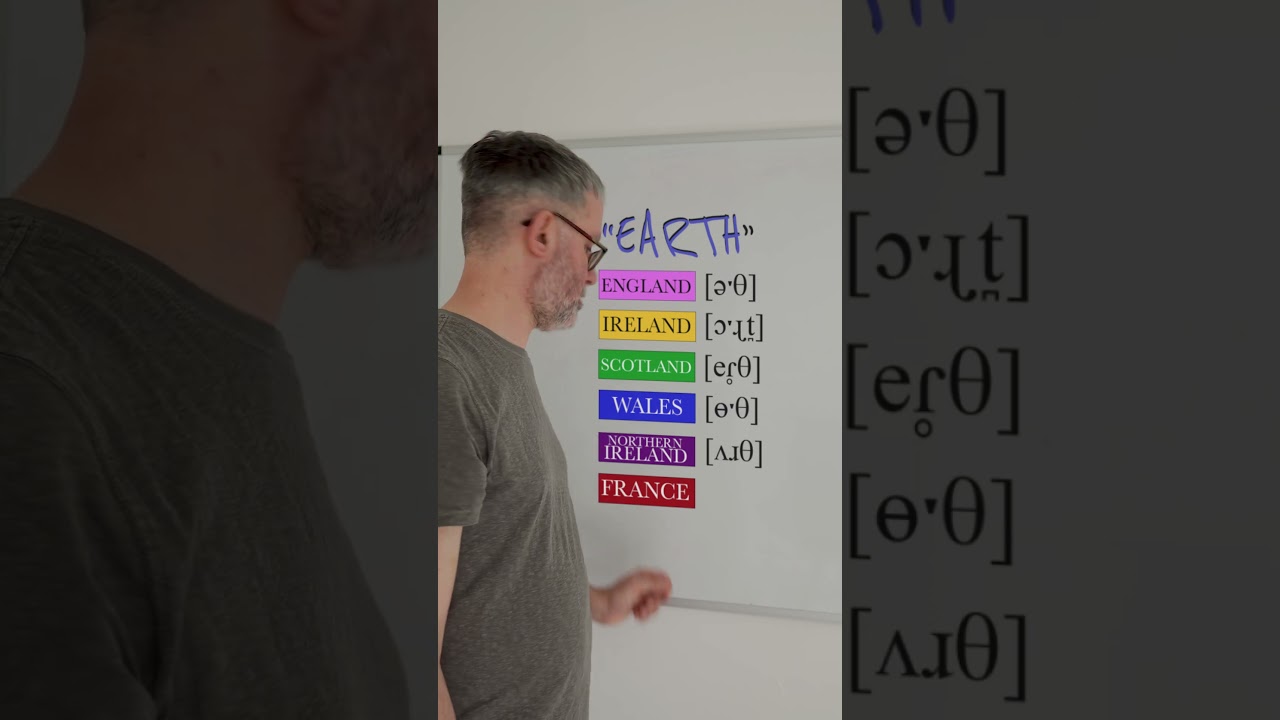 “EARTH”
ENGLAND [əˑθ]
IRELAND [ɔˑɻt̪]
SCOTLAND [eɾ̥θ]
WALES [ɵˑθ]
NORTHERN IRELAND [ʌɹθ]
FRANCE
[əˑθ]
[ɔˑɻt̪]
[eɾ̥θ]
[ɵˑθ]
[ʌɹθ]